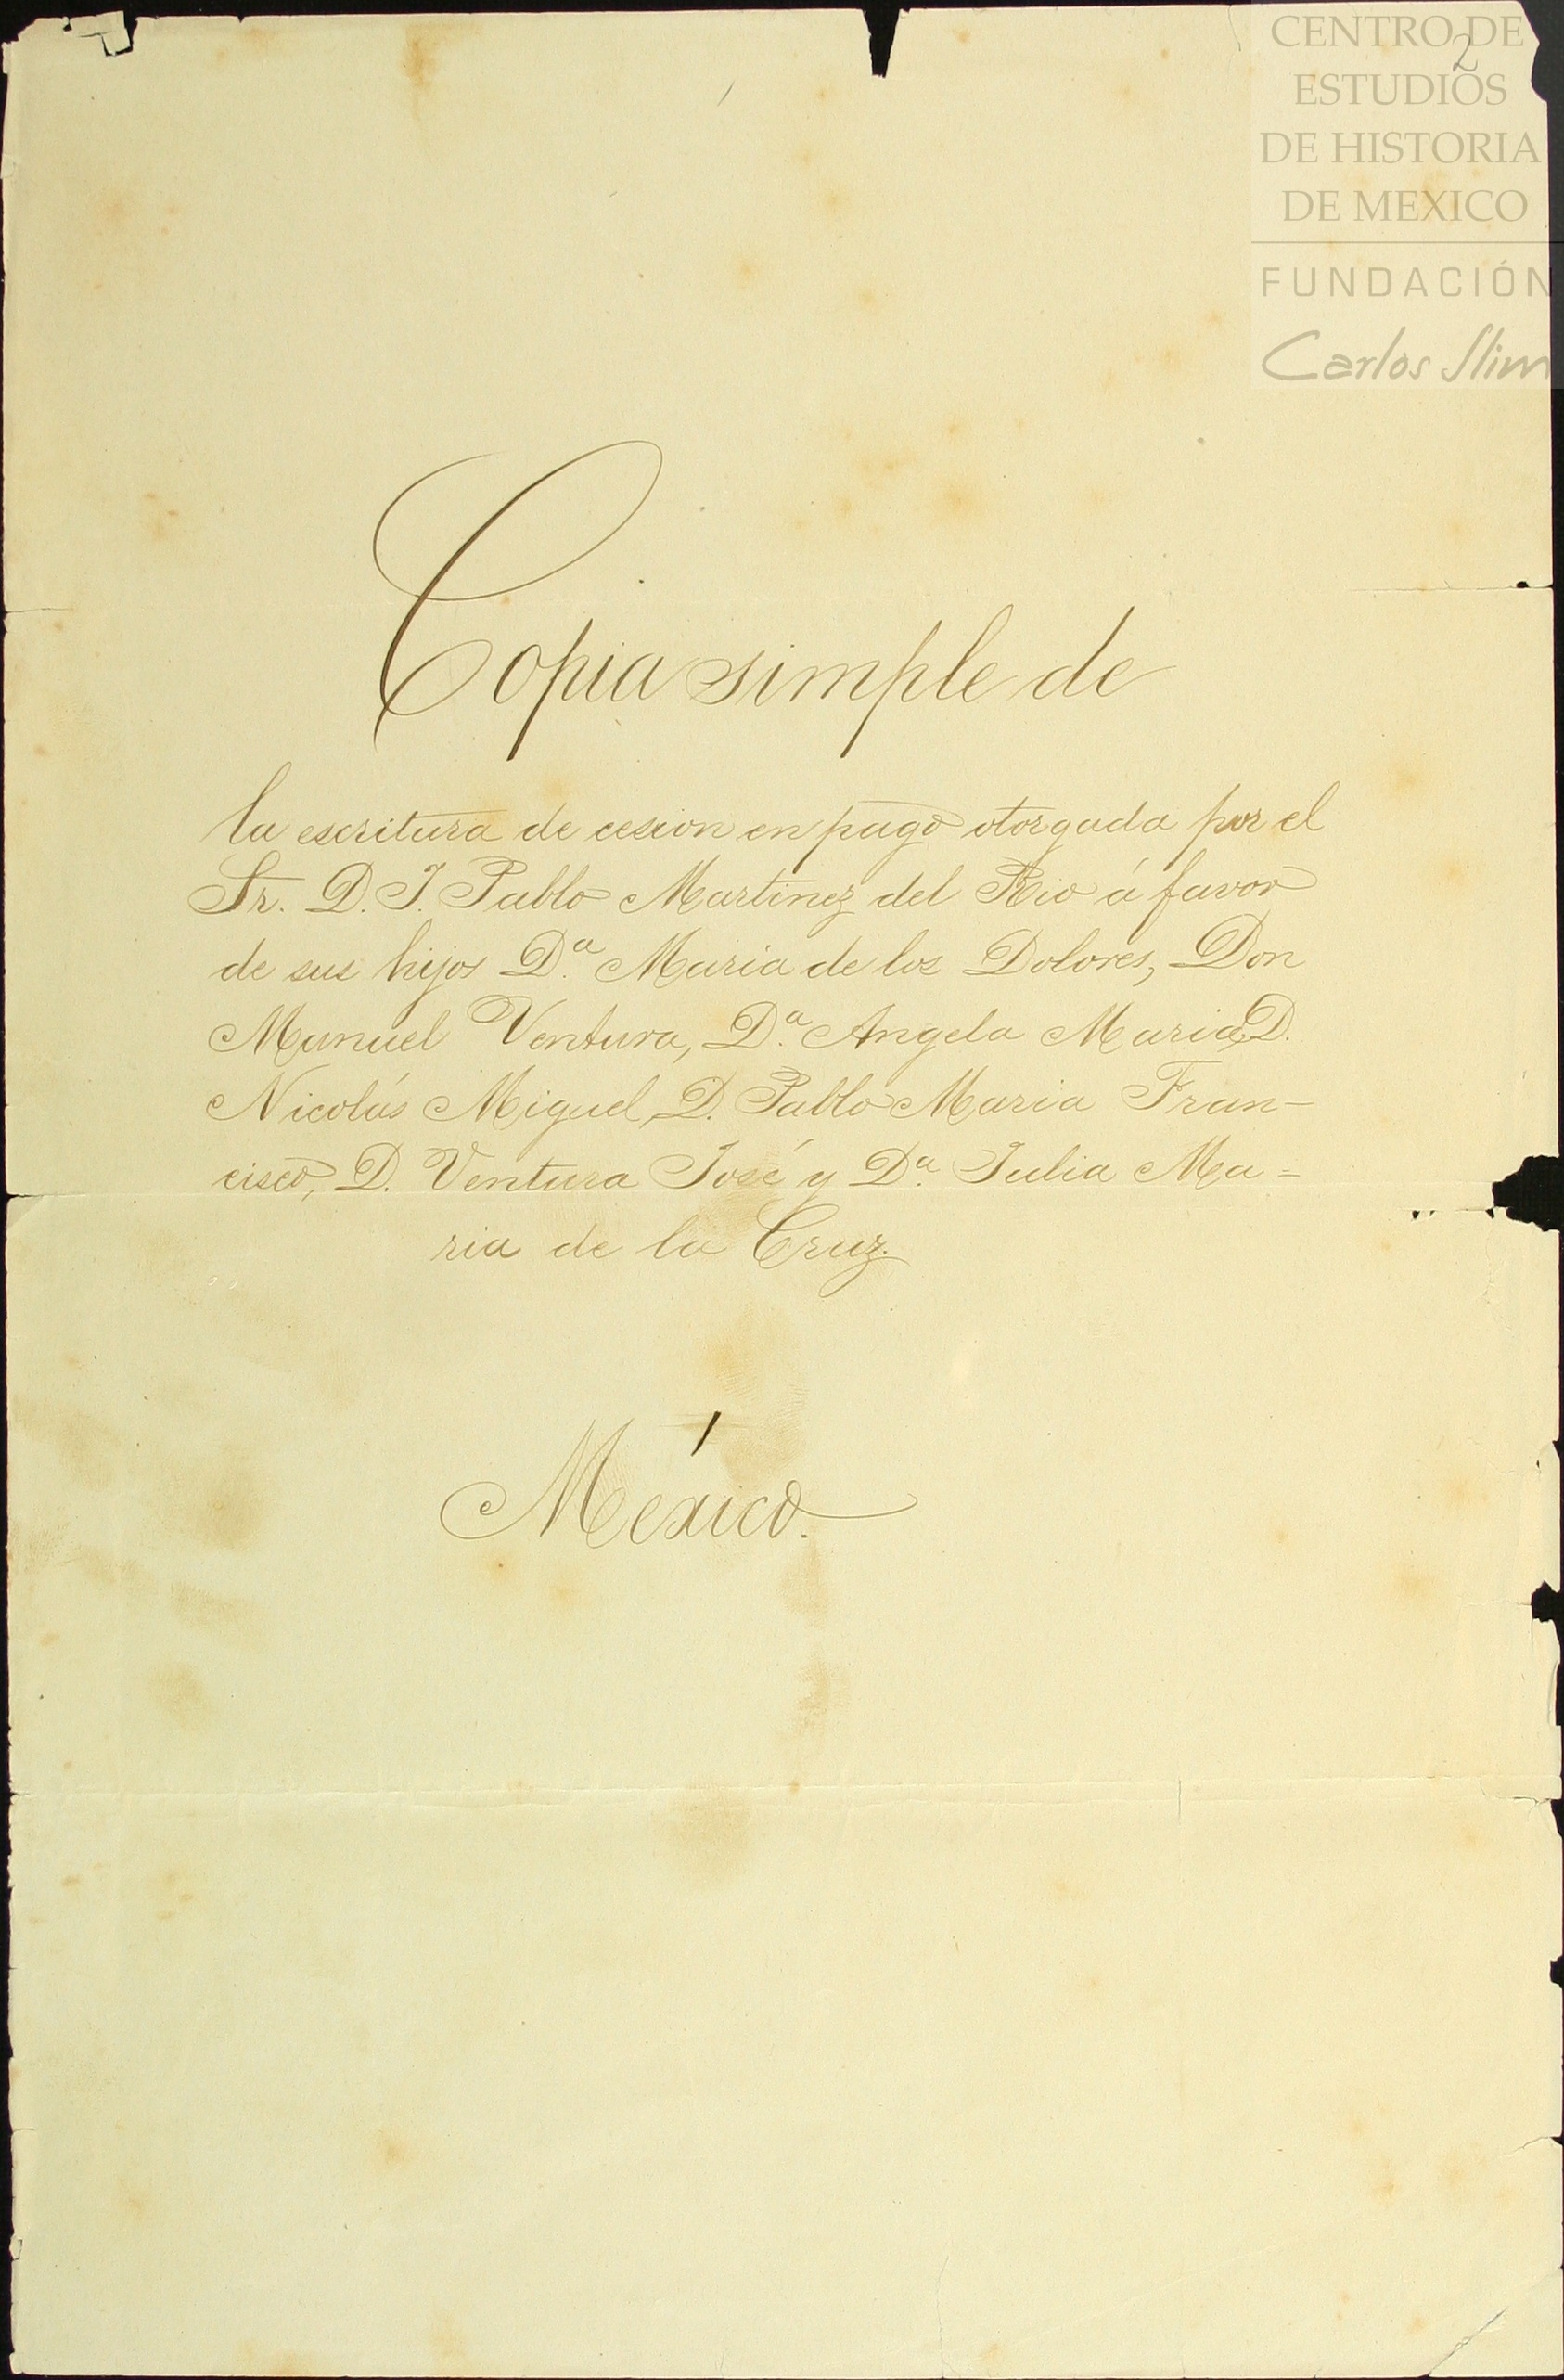 CENTRO DE
ESTUDIOS
DE HISTORIA
DE MEXICO
FUNDACIÓN
Carlos Slim
2
Copia simple de
la escritura de cesion en pago otorgada por el
Sr. D. J. Pablo Martinez del Rio á favor
de sus hijos D.ª Maria de los Dolores, Don
Manuel Ventura, D.ª Angela Maria, D.
Nicolás Miguel, D. Pablo Maria Fran-
cisco, D. Ventura José y D.ª Julia Ma=
ria de la Cruz.
México.